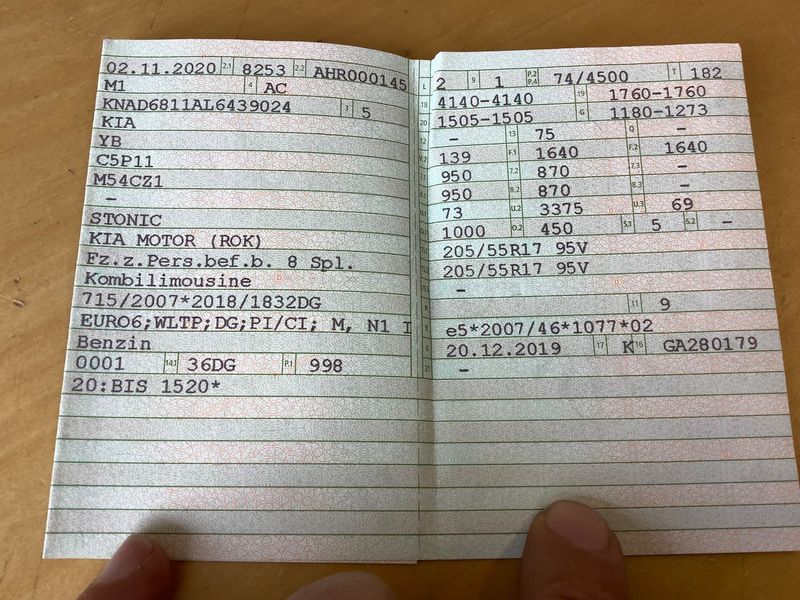 02.11.2020 2.1 8253 2.2 AHR000145
M1 4 AC
KNAD6811AL6439024 3 5
KIA
YB
C5P11
M54CZ1
-
STONIC
KIA MOTOR (ROK)
Fz.z.Pers.bef.b. 8 Spl.
Kombilimousine
715/2007*2018/1832DG
EURO6;WLTP;DG;PI/CI; M, N1 I
Benzin
0001 14.1 36DG P.1 998
20:BIS 1520*
L 2 9 1 P.2 P.4 74/4500 T 182
18 4140-4140 19 1760-1760
20 1505-1505 G 1180-1273
12 - 13 75 Q -
139 F.1 1640 F.2 1640
950 7.2 870 7.3 -
950 8.2 870 8.3 -
U.1 73 U.2 3375 U.3 69
O.1 1000 O.2 450 S.1 5 S.2 -
205/55R17 95V
205/55R17 95V
-
R 11 9
K e5*2007/46*1077*02
6 20.12.2019 17 K 16 GA280179
21 -